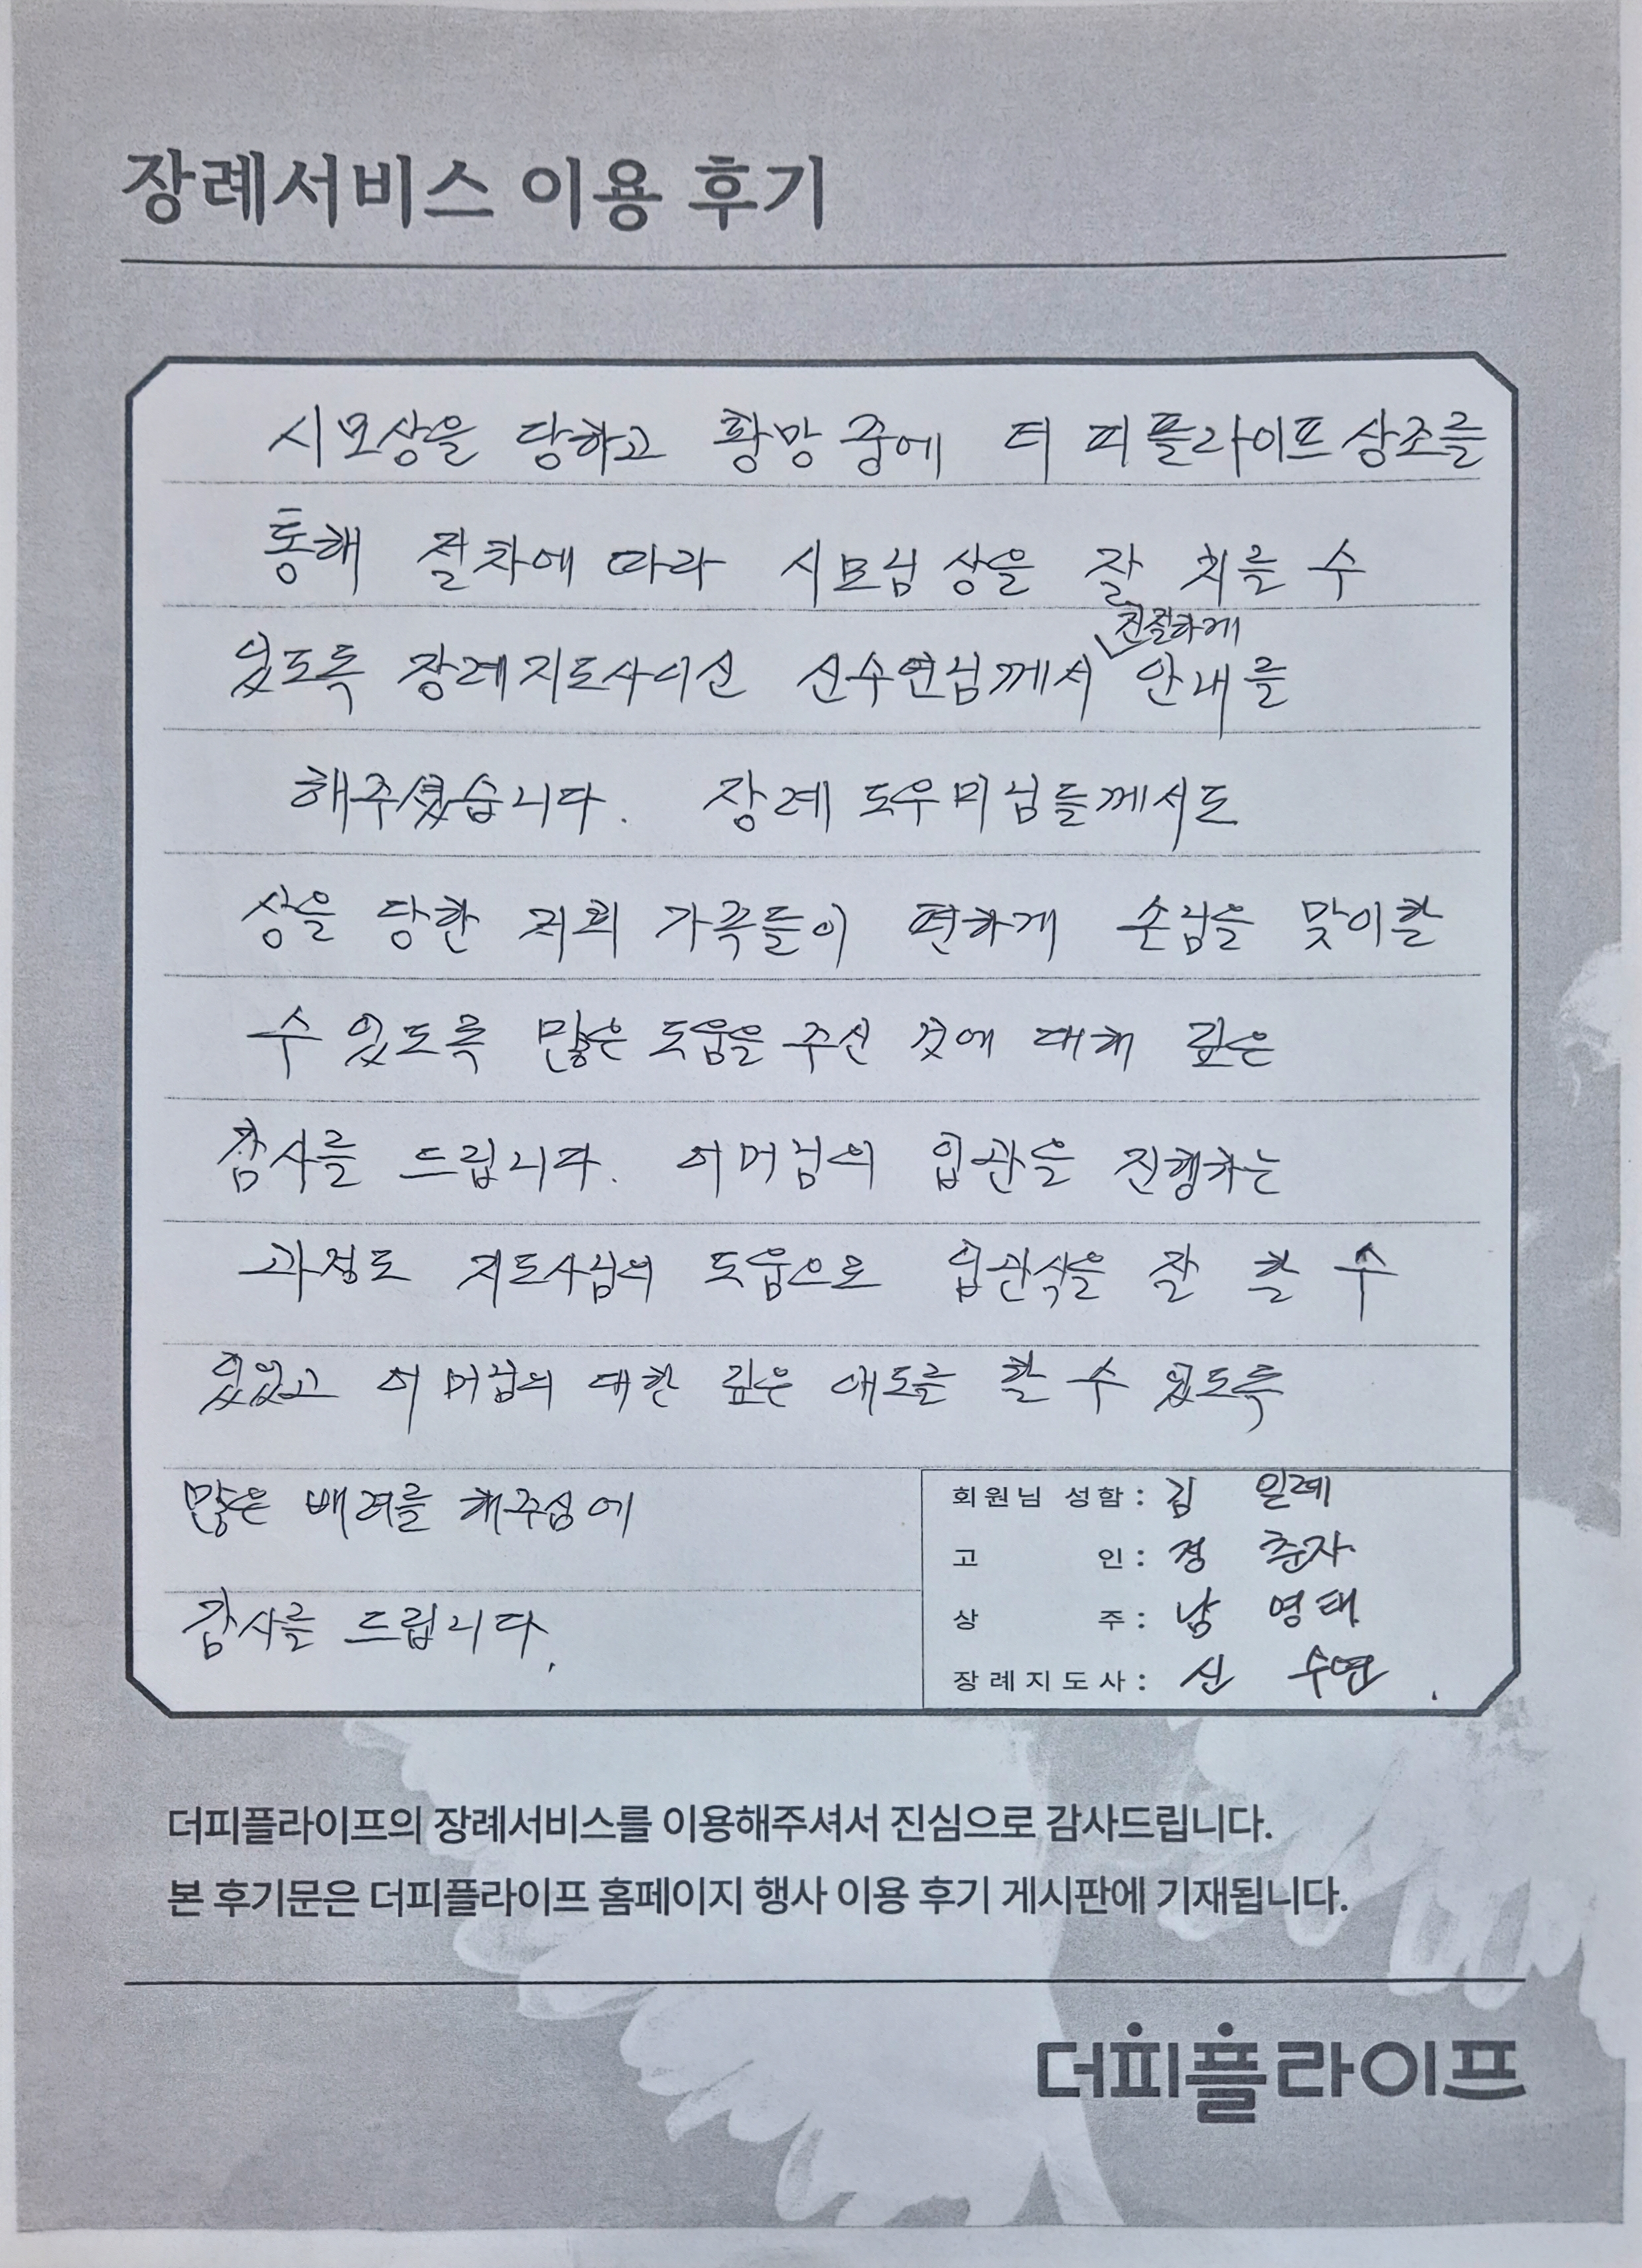 장례서비스 이용 후기
시모상을 당하고 황망 중에 더 피플라이프 상조를
통해 절차에 따라 시모님 상을 잘 치를 수
친절하게
있도록 장례지도사이신 신수연님께서 안내를
해주셨습니다. 장례 도우미님들께서도
상을 당한 저희 가족들이 편하게 손님을 맞이할
수 있도록 많은 도움을 주신 것에 대해 깊은
감사를 드립니다. 어머님의 입관을 진행하는
과정도 지도사님의 도움으로 입관식을 잘 할 수
있었고 어머님의 대한 깊은 애도를 할 수 있도록
많은 배려를 해주심에
감사를 드립니다.
회원님 성함 : 김 일례
고 인 : 정 춘자
상 주 : 남 영태
장례지도사 : 신 수연
더피플라이프의 장례서비스를 이용해주셔서 진심으로 감사드립니다.
본 후기문은 더피플라이프 홈페이지 행사 이용 후기 게시판에 기재됩니다.
더피플라이프